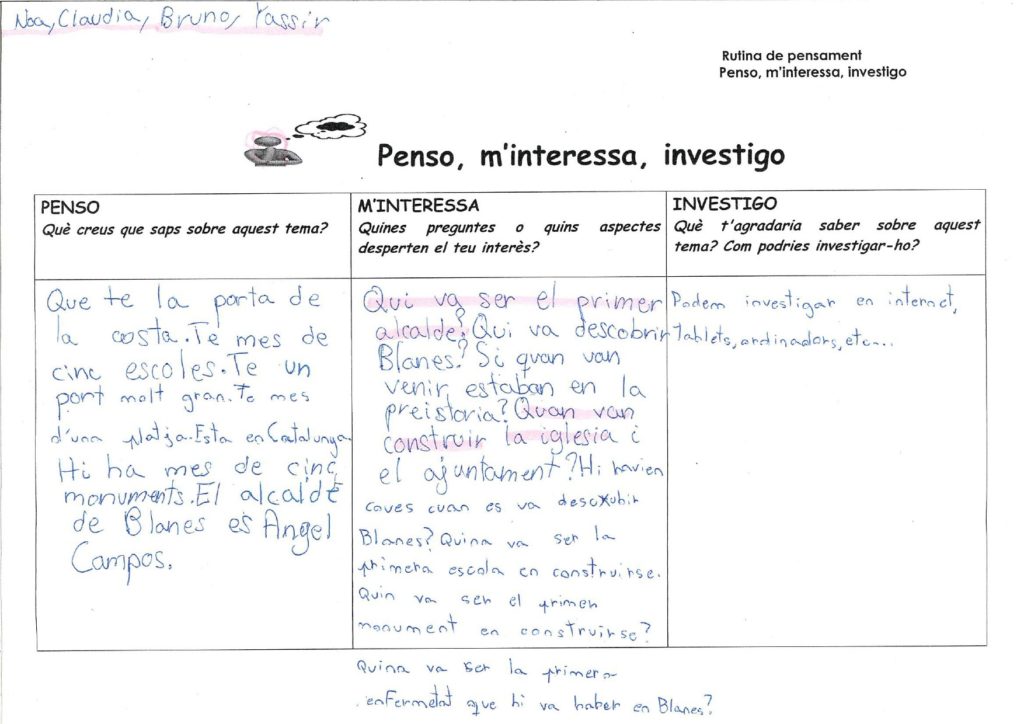 Noa, Claudia, Bruno, Yassir
Rutina de pensament
Penso, m'interessa, investigo
Penso, m'interessa, investigo
PENSO
Què creus que saps sobre aquest tema?
Que te la porta de
la costa. Té mes de
cinc escoles. Te un
port molt gran. Te mes
d'una platja. Esta en Catalunya
Hi ha mes de cinc
monuments. El alcalde
de Blanes es Angel
Campos.
M'INTERESSA
Quines preguntes o quins aspectes
desperten el teu interès?
Qui va ser el primer
alcalde? Qui va descobrir
Blanes? Si quan van
venir estaban en la
preistoria? Quan van
construir la iglesia i
el ajuntament? Hi havien
coves cuan es va descubir
Blanes? Quina va ser la
primera escola en construirse.
Quin va ser el primer
monument en construirse?
Quina va ser la primera
enfermetat que hi va haber en Blanes?
INVESTIGO
Què t'agradaria saber sobre aquest
tema? Com podries investigar-ho?
Podem investigar en internet,
tablets, ordinadors, etc...